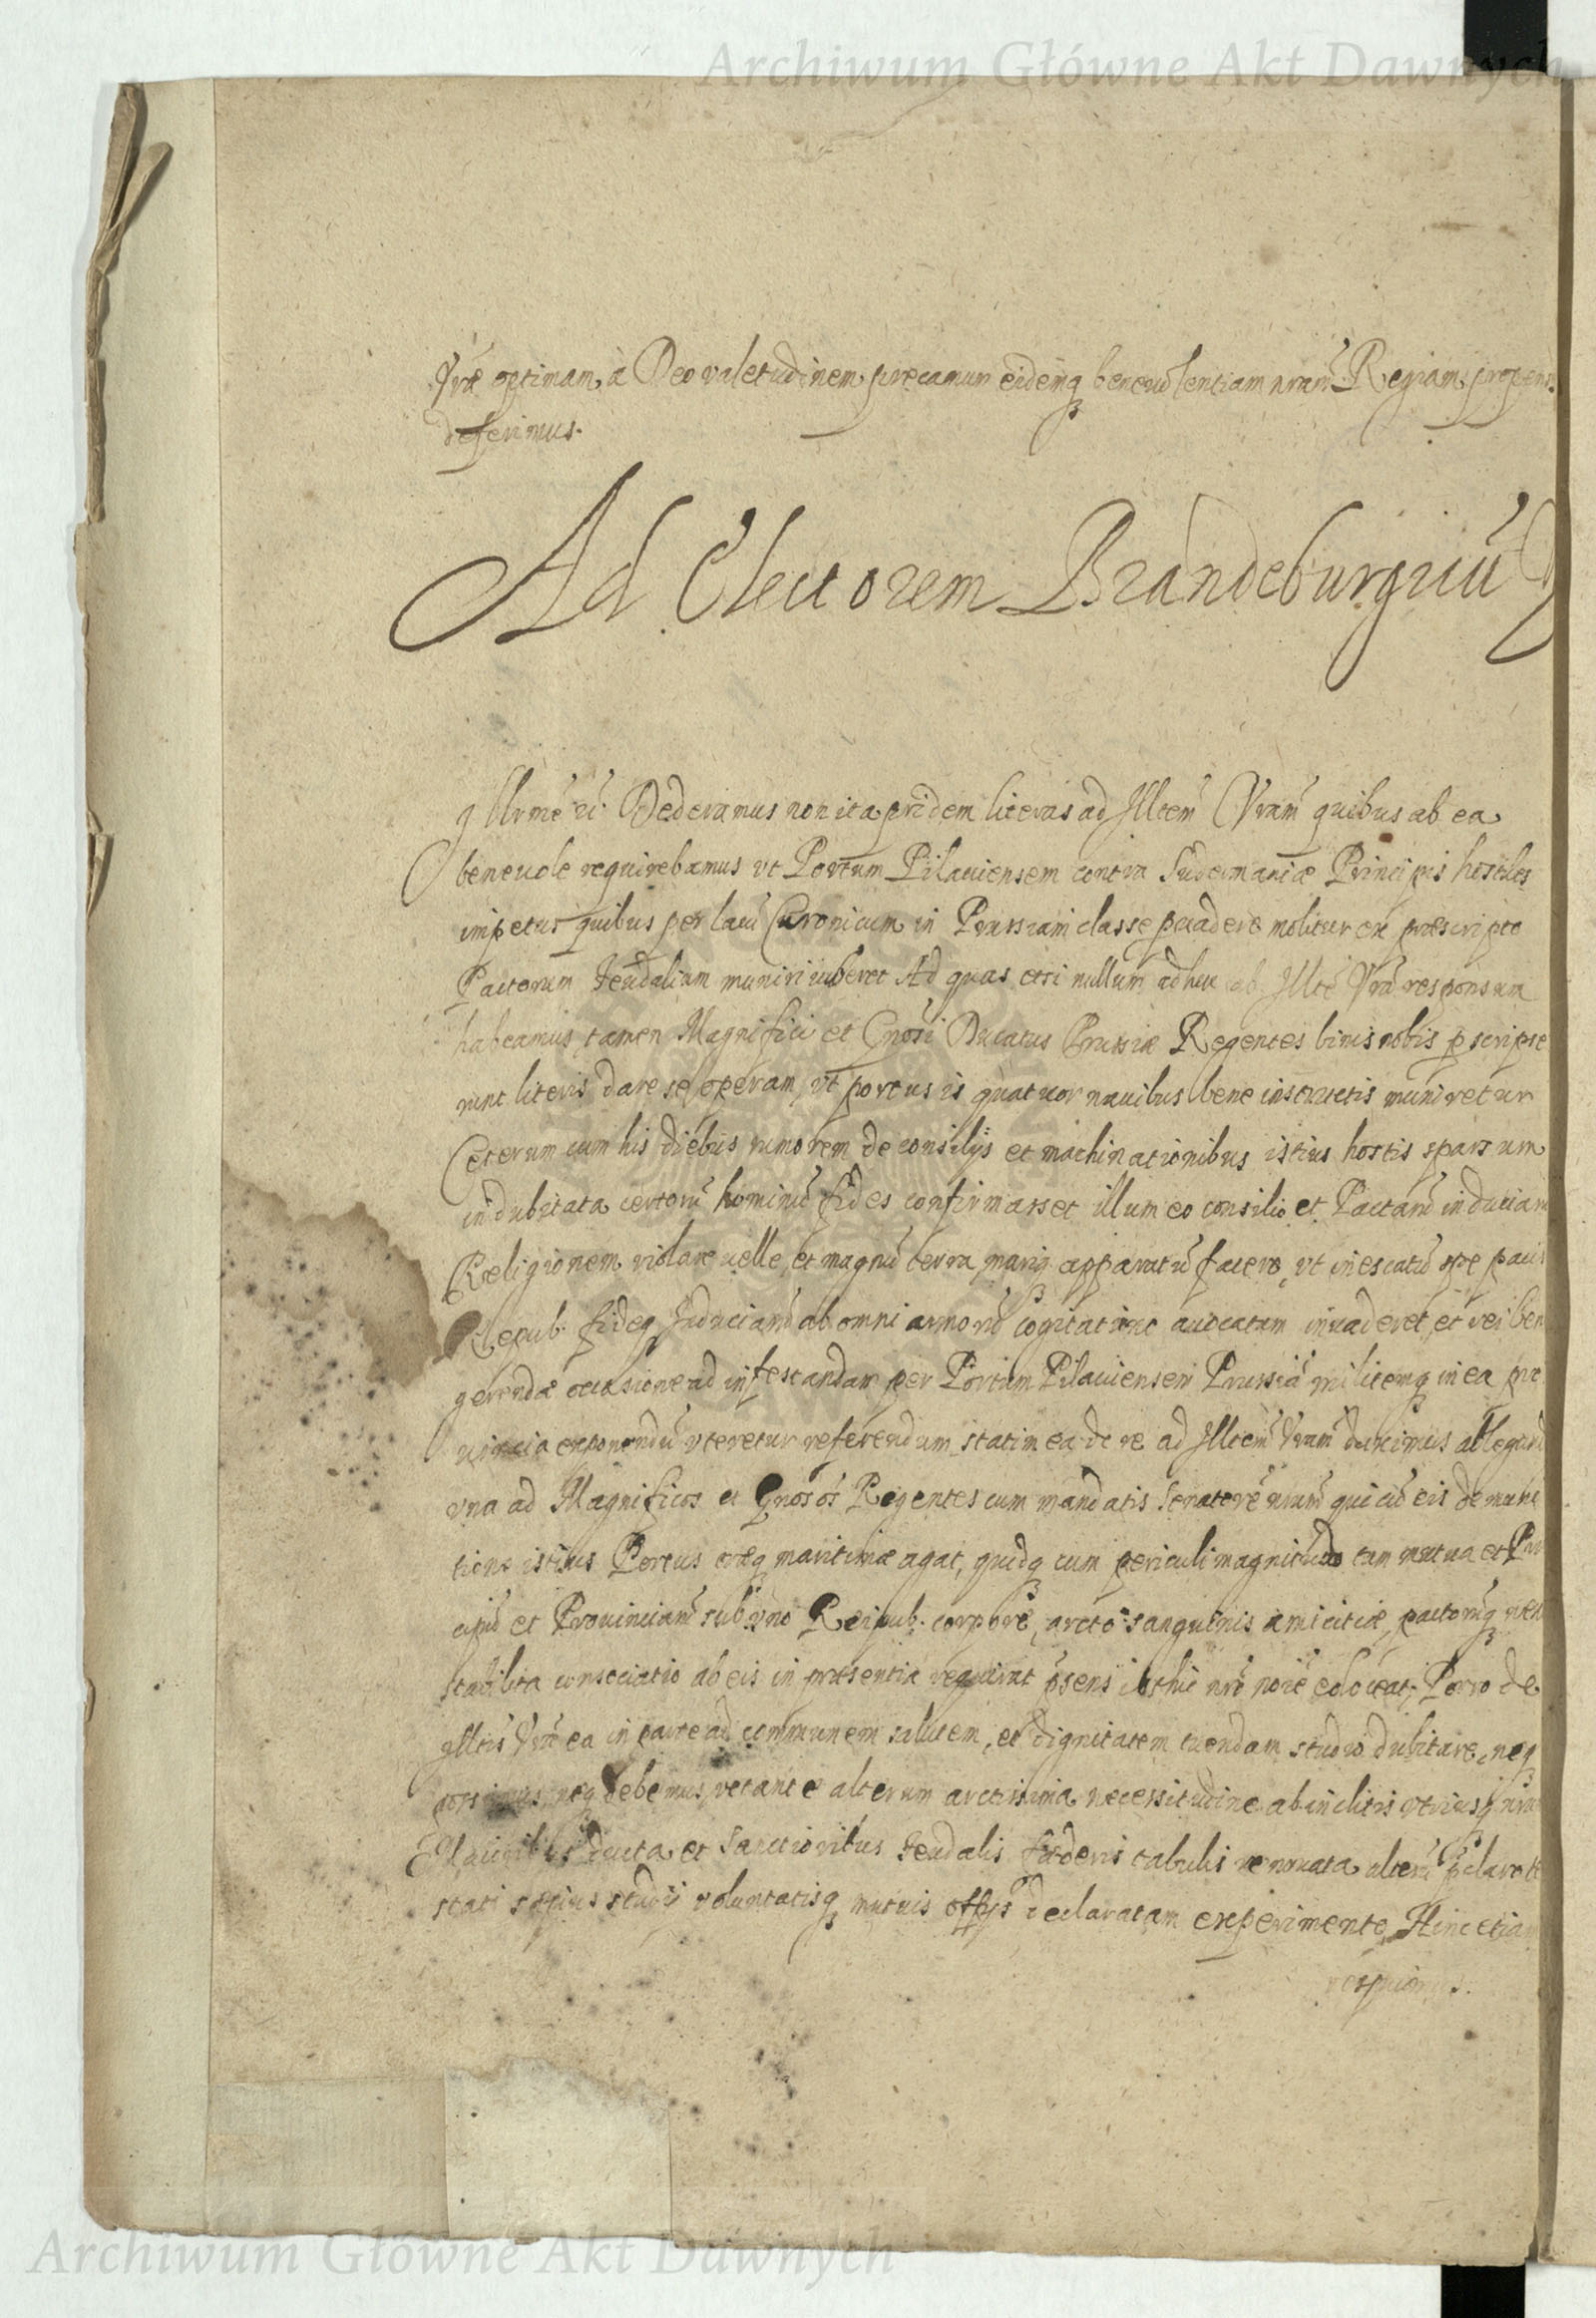 Archiwum Główne Akt Dawnych
Vrae optimam à Deo valetudinem precamur eidemq beneuolentiam nram Regiam propens
deferimus.
Ad Electorem Brandeburgicū
Illrme etc. Dederamus non ita pridem literas ad Illtem Vram quibus ab ea
beneuole requirebamus vt Portum Pilauiensem contra Sudermaniae Principis hostiles
impetus quibus per lacū Curonicum in Prussiam classe peruadere molitur ex praescripto
Pactorum feudalium muniri iuberet Ad quas etsi nullum adhuc ab Illte Vra responsum
habeamus, tamen Magnifici et Gnosi Ducatus Prussiae Regentes binis nobis pscripse
runt literis dare se operam, vt portus is quatuor nauibus bene instructis muniretur
Ceterum cum his diebus rumorem de consilijs et machinationibus istius hostis sparsum
indubitata certorū hominū fides confirmasset illum eo consilio et Pactarū induciarū
Religionem violare uelle, et magnū terra mariq apparatū facere, vt inescatū spe pacis
Repub. fideq Induciarū ab omni armorū cogitatione auocatam inuaderet, et rei ben
gerendae occasione ad infestandam per Portum Pilauiensem Prussiā militemq in ea pro
uincia exponendū vteretur referendum statim ea de re ad Illtem Vram duximus ablegand
vna ad Magnificos et Gnosos Regentes cum mandatis Senatorē nrum qui cū eis de muni
tione istius Portus oraeq maritimae agat, quidq cum periculi magnitudo tam mutua et Prin
cipū et Prouinciarū sub vno Reipub. corpore, arcto sanguinis amicitiae, pactorūq nexu
stabilita consociatio ab eis in praesentia requirat psens isthic nro noie edoceat, Porro de
Illtis Vrae ea in parte ad communem salutem, et dignitatem tuendam studio dubitare, neq
possumus neq debemus, vetant e alterum arctissima necessitudine ab inclitis vtriusq nrum
Maioribus ducta, et Sanctioribus feudalis foederis tabulis renouata alterū pclaro te
stati saepius studij voluntatisq mutuis offijs declaratam experimento, Hinc etiam
Archiwum Główne Akt Dawnych